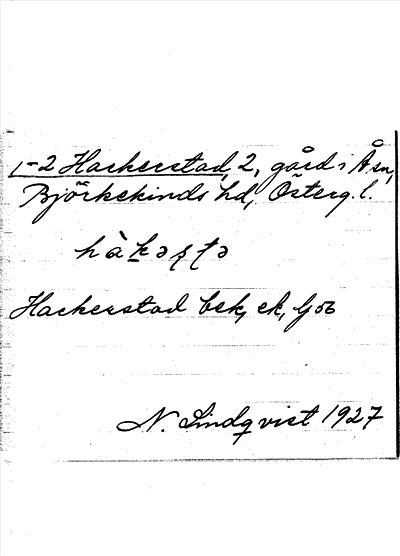 1-2 Hackerstad, 2, gård i Å sn,
Björkekinds hd, Österg. l.
hàkəʂʈə
Hackerstad bsk, ek, Gs
N. Lindqvist 1927